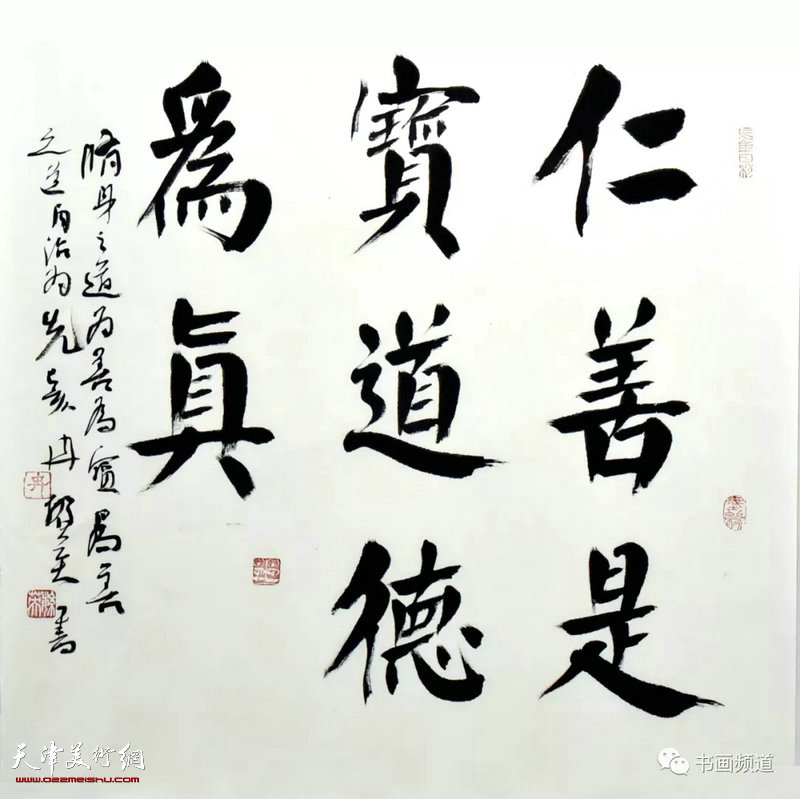 仁善是
寶道德
爲真
脩身之道為善為寶為善
之道自治為先
冉
書
天津美術網
www.022meishu.com
书画频道